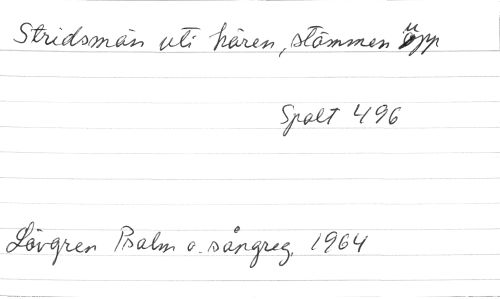 Stridsmän uti hären, stämmen upp
Spalt 496
Lövgren Psalm o. sångreg. 1964